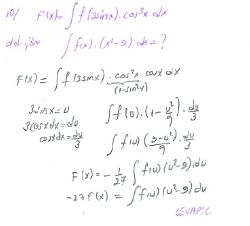 10/ F(x)=∫f(3sinx).cos³x dx
∫f(x).(x²-9)dx=?
F(x)=∫f(3sinx).cos²x.cosx dx
(1-sin²x)
3sinx=u
3cosxdx=du
cosxdx=du/3
∫f(u).(1-u²/9).du/3
∫f(u)(9-u²/9)du/3
F(x)=-1/27∫f(u)(u²-9).du
-27F(x)=∫f(u)(u²-9)du
CEVAP:C